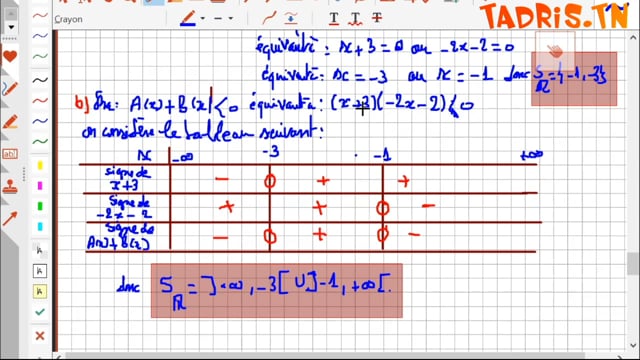 TADRIS.TN
Crayon
équivauté: x + 3 = 0 ou -2x - 2 = 0
équivauté: x = -3 ou x = -1 donc S_ℝ = {-1, -3}
b) On: A(x) + B(x) < 0 équivauta: (x+3)(-2x-2) < 0
on considère le tableau suivant:
x -∞ -3 -1 +∞
signe de x+3 - 0 + +
signe de -2x-2 + + 0 -
signe de A(x)+B(x) - 0 + 0 -
donc S_ℝ = ]-∞, -3[ ∪ ]-1, +∞[.